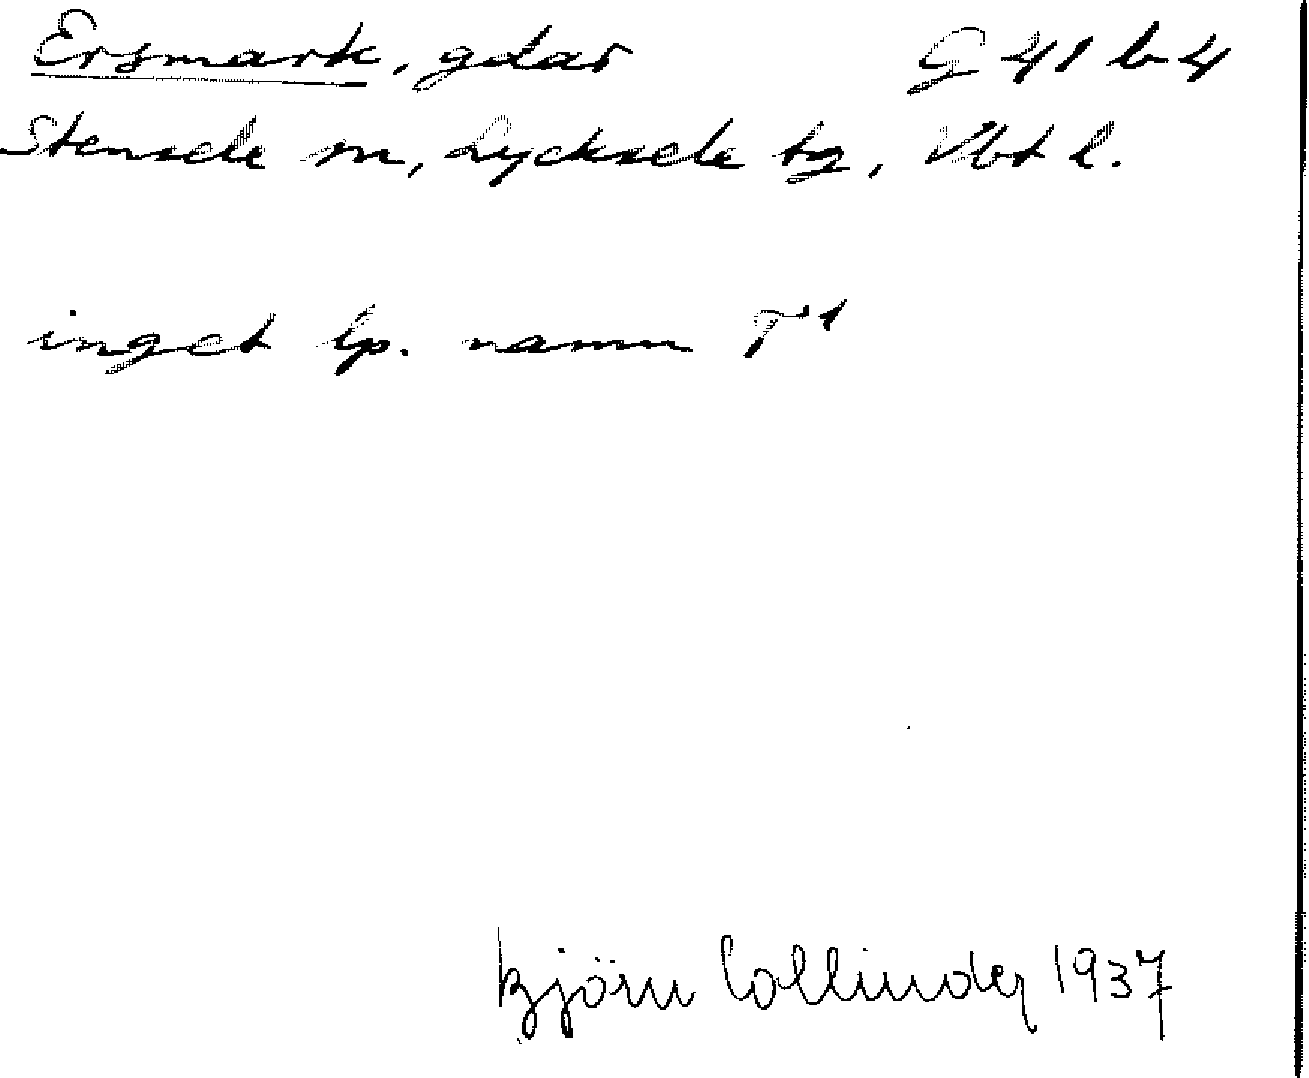 Ersmark, gdar G 41 b 4
Stensele sn, Lycksele tg, Vbt l.
inget lp. namn T¹
Björn Collinder 1937